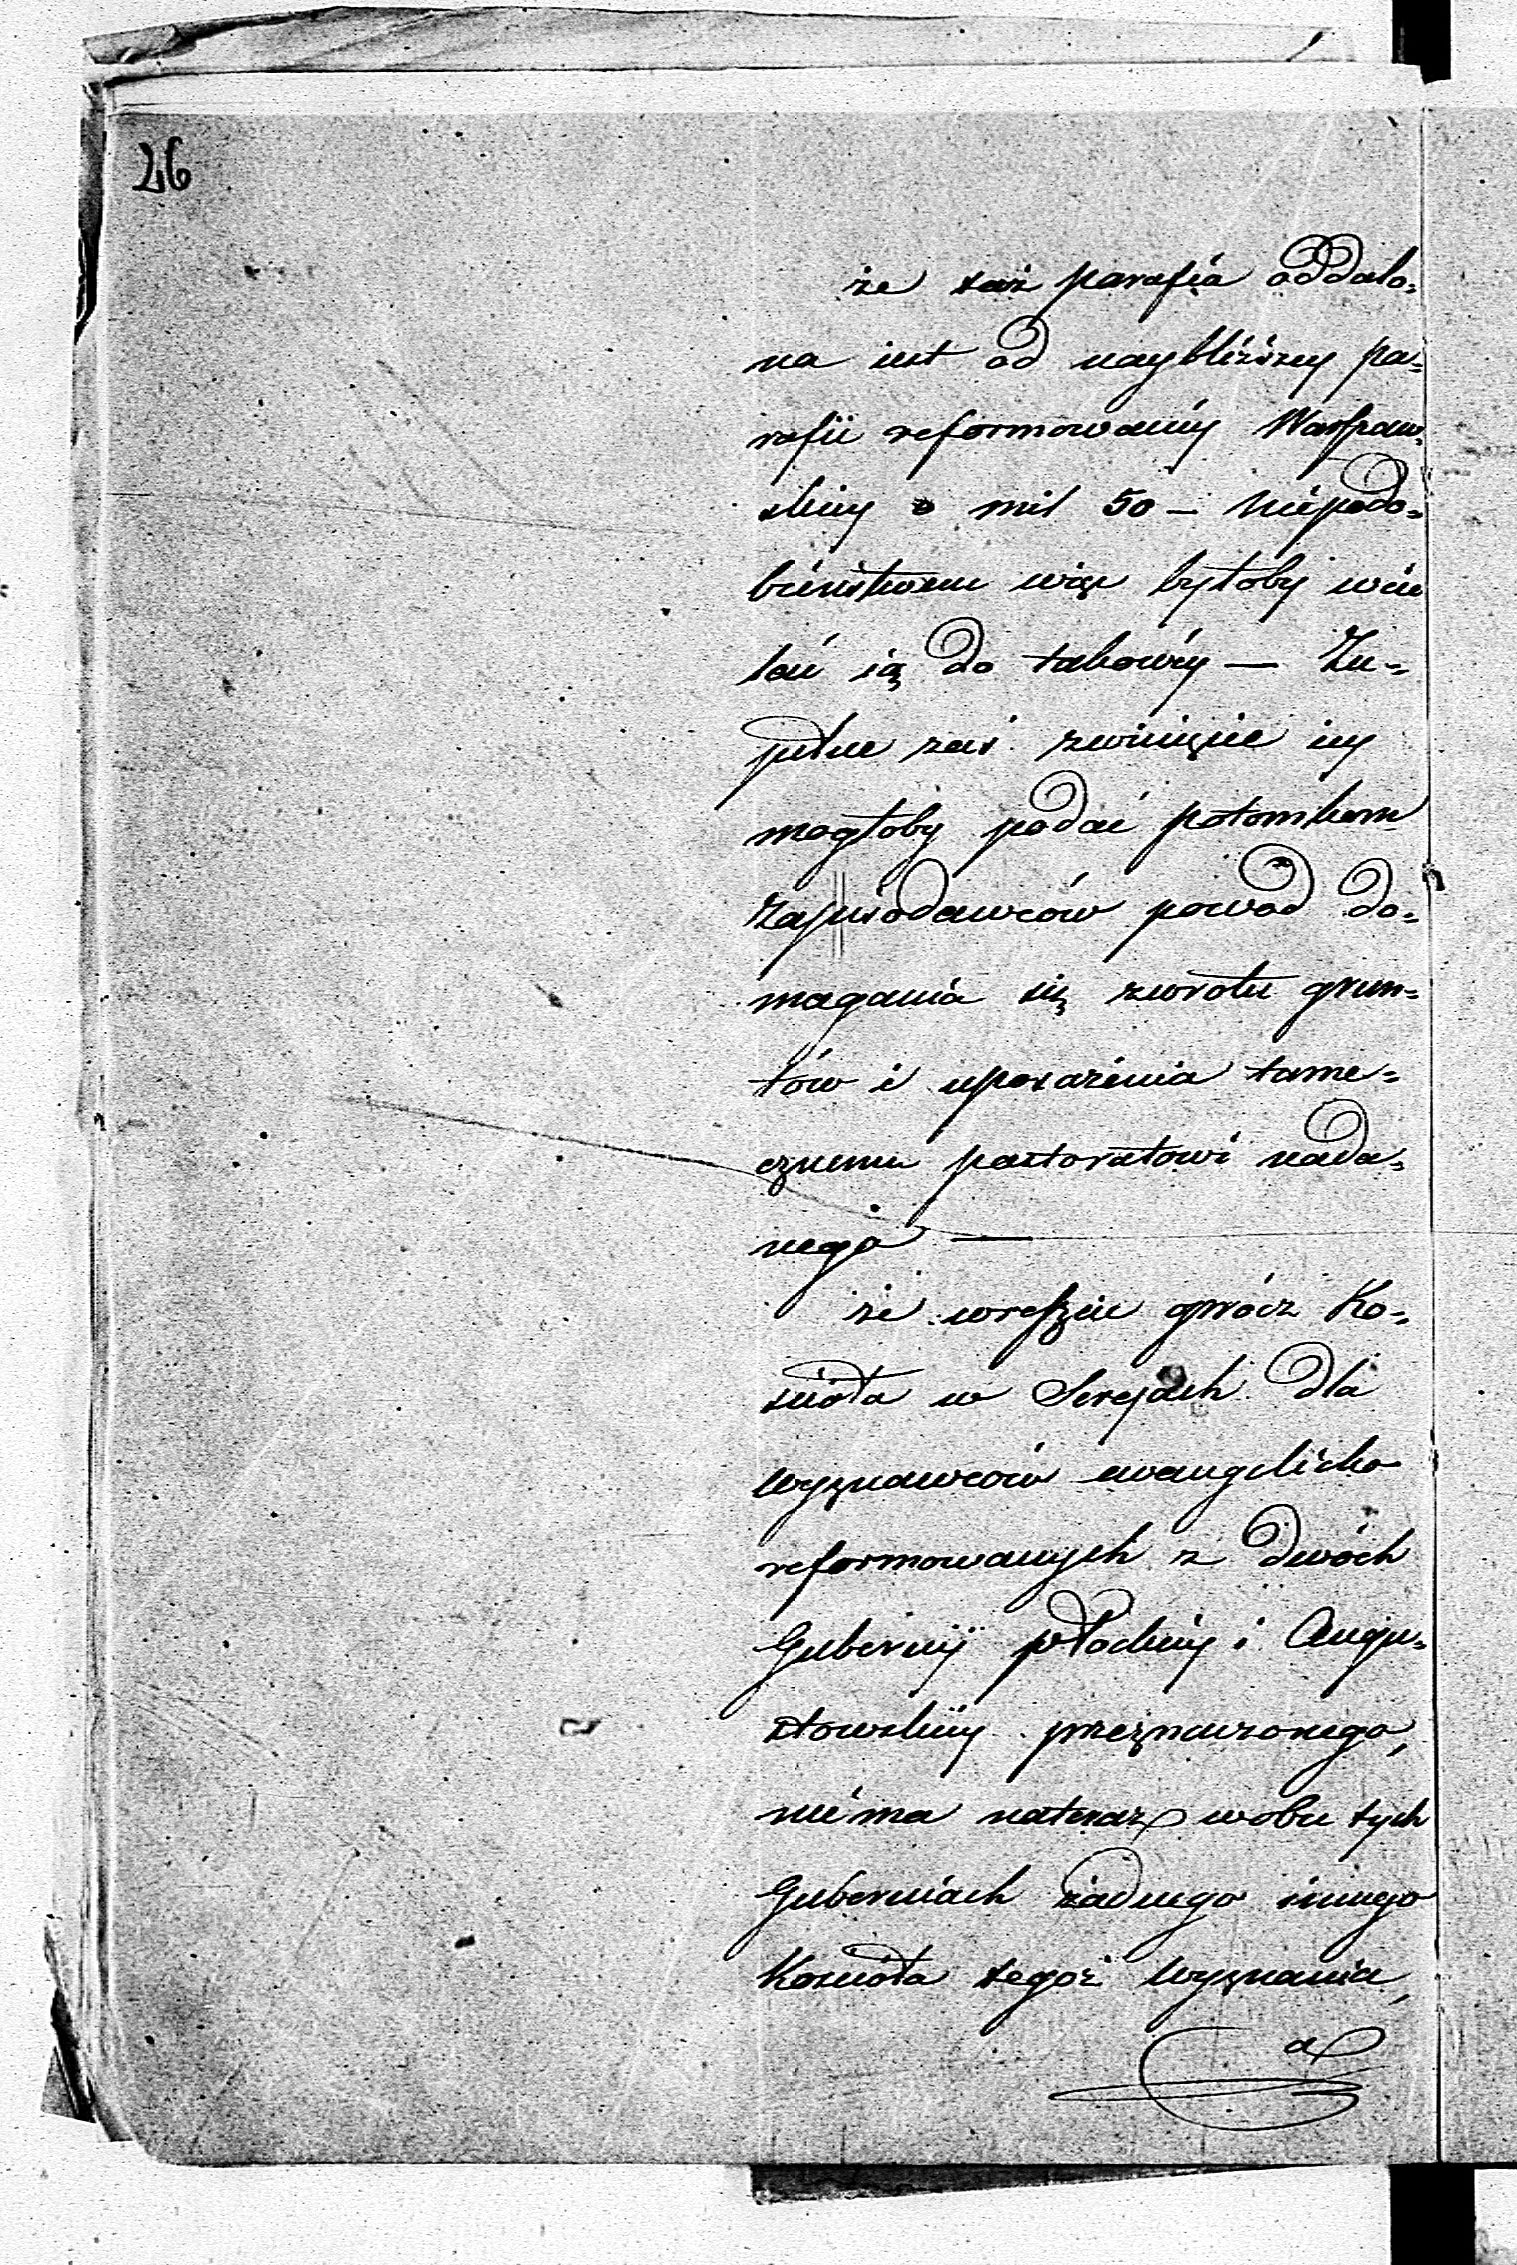 26
że taż parafia oddalo=
na iest od naybliższey pa=
rafii reformowanéy Warszaw=
skiey o mil 50 — niepodo=
bieństwem więc byłoby wcie
lać ią do takowéy — Zu=
pełne zaś zwinięcie iey
mogłoby podać potomkom
Zapisodawców powód do=
magania się zwrotu grun=
tów i uposażenia tame=
cznemu pastoratowi nada=
nego —
że wreszcie oprócz Ko=
ścioła w Serejach dla
wyznawców ewangelicko
reformowanych z dwóch
Gubernij płockiey i Augu=
stowskiéy przeznaczonego,
niéma nateraz w obu tych
Guberniach żadnego innego
Kościoła tegoż wyznania,
a